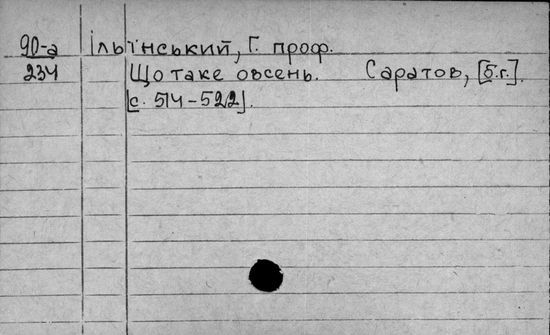 90-а Ільїнський, Г. проф.
234 Що таке овсень. Саратов, [б.г.].
[с. 514-522].